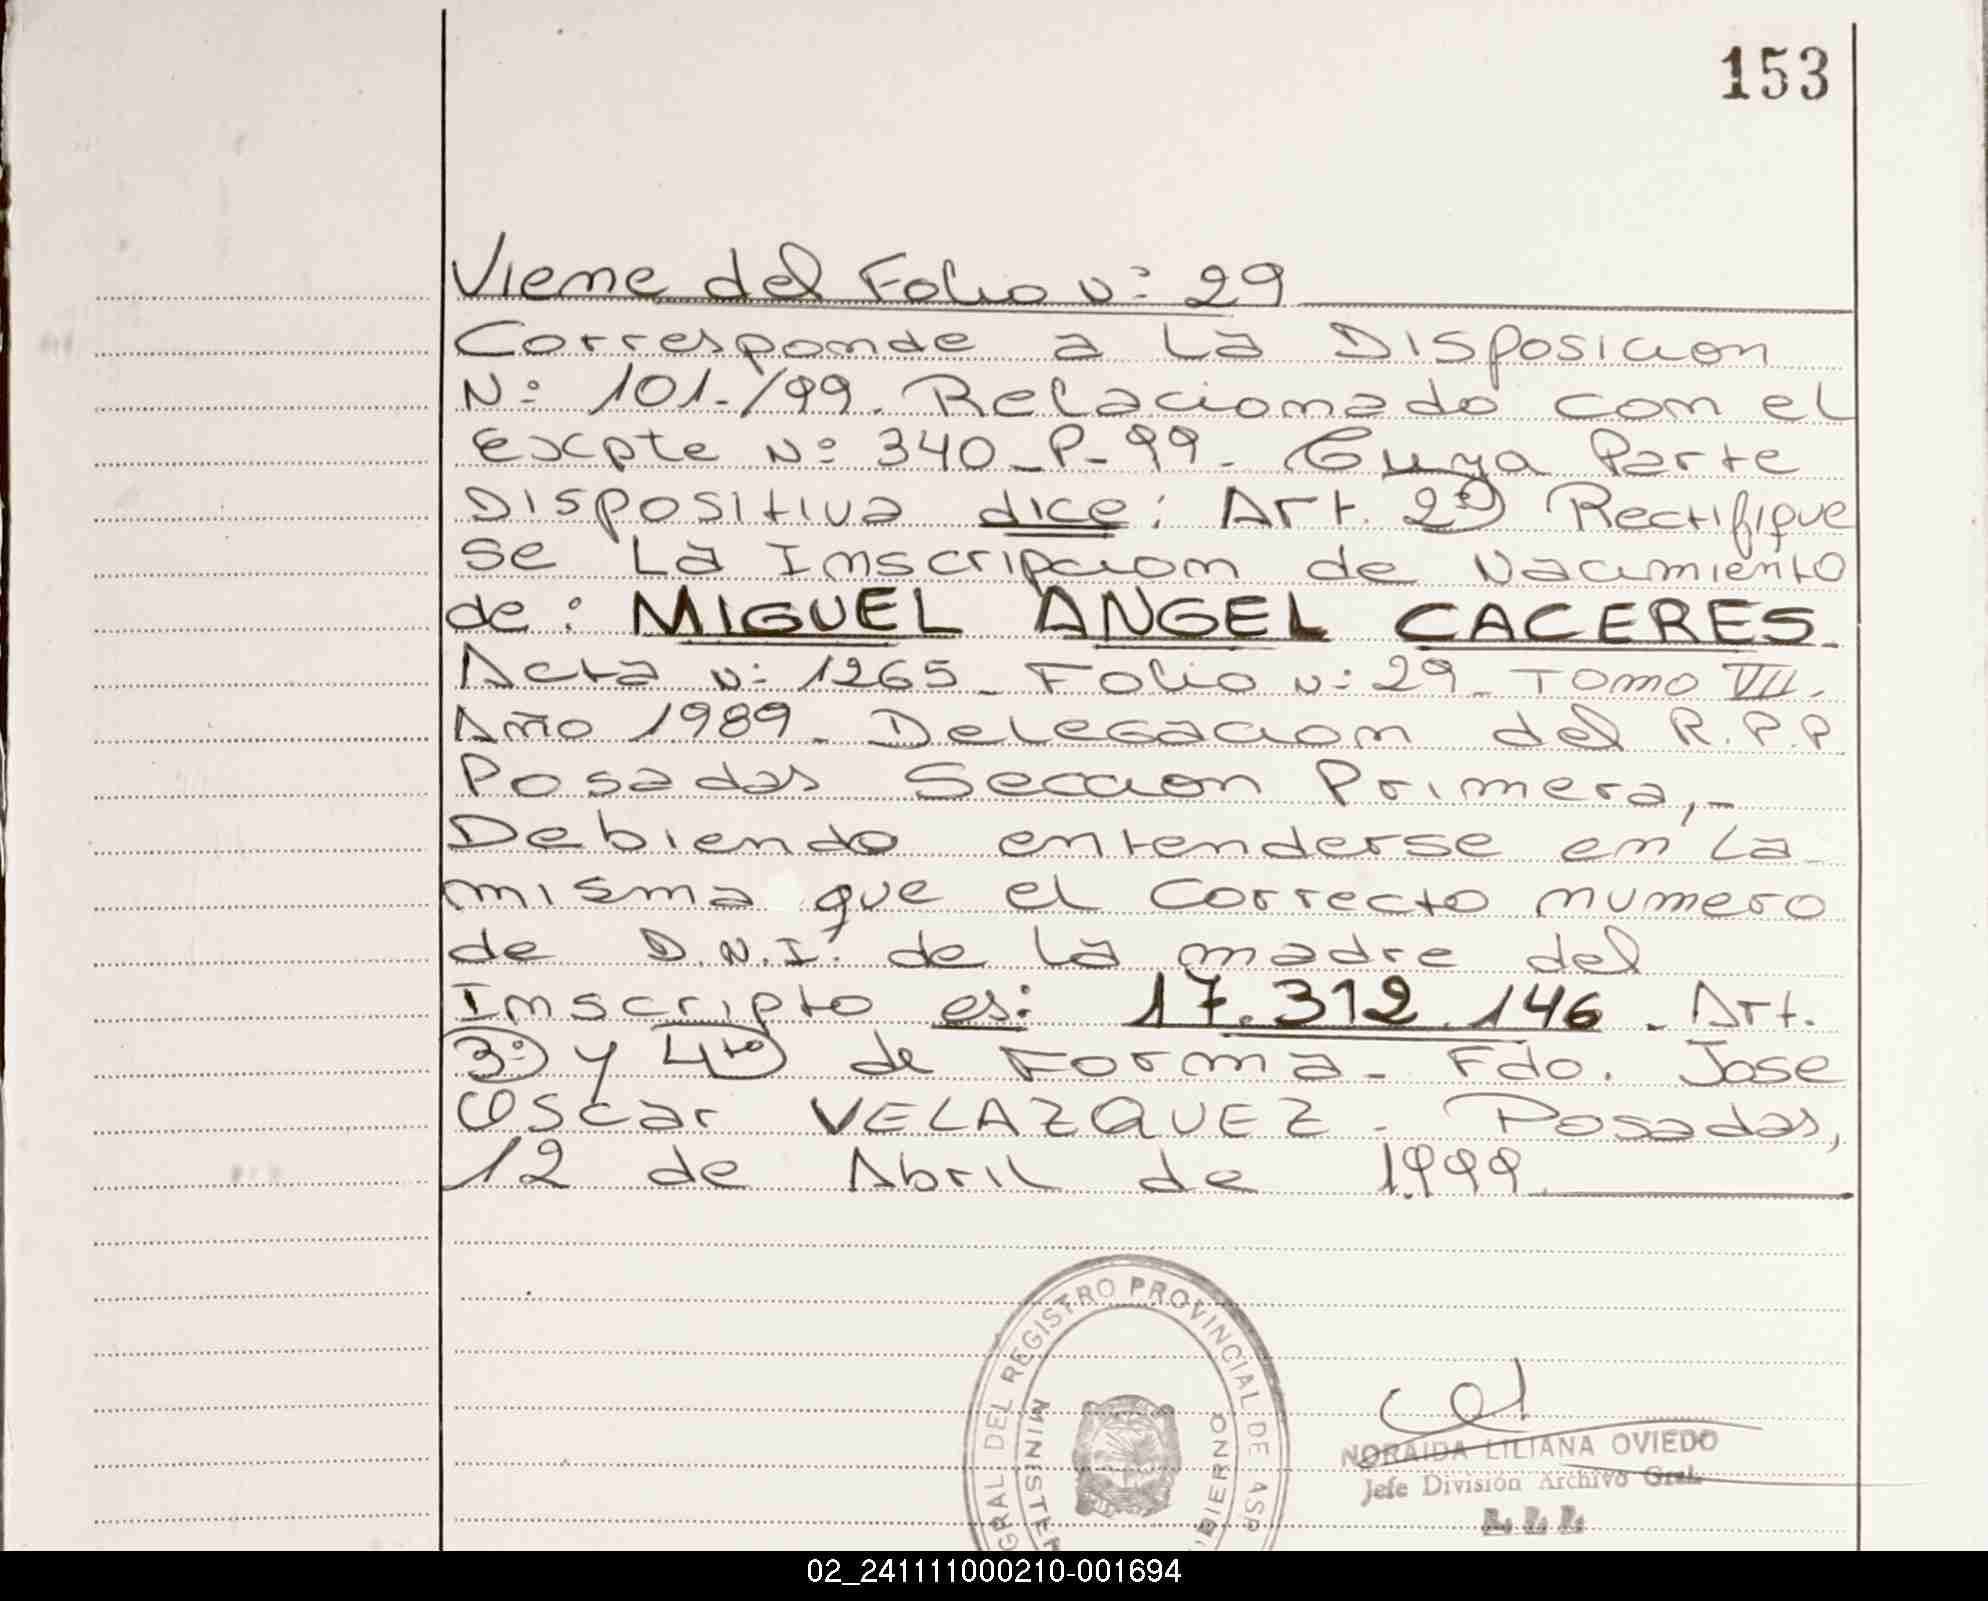 153
Viene del Folio Nº 29
Corresponde a La Disposicion
Nº 101-/99. Relacionado con el
Excpte Nº 340-P-99- Cuya Parte
Dispositiva dice: Art. 2º) Rectifique
se La Inscripcion de Nacimiento
de: MIGUEL ANGEL CACERES.
Acta Nº 1265- Folio Nº 29- Tomo VII.
Año 1989- Delegacion del R.P.P
Posadas Seccion Primera,-
Debiendo entenderse en La
misma que el correcto numero
de D.N.I. de la madre del
Inscripto es: 17.312.146. Art.
3º) y 4to) de Forma- Fdo. Jose
Oscar VELAZQUEZ- Posadas,
12 de Abril de 1999
GRAL DEL REGISTRO PROVINCIAL DE
MINISTE
BIERNO
NORAIDA LILIANA OVIEDO
Jefe División Archivo Gral.
02_241111000210-001694